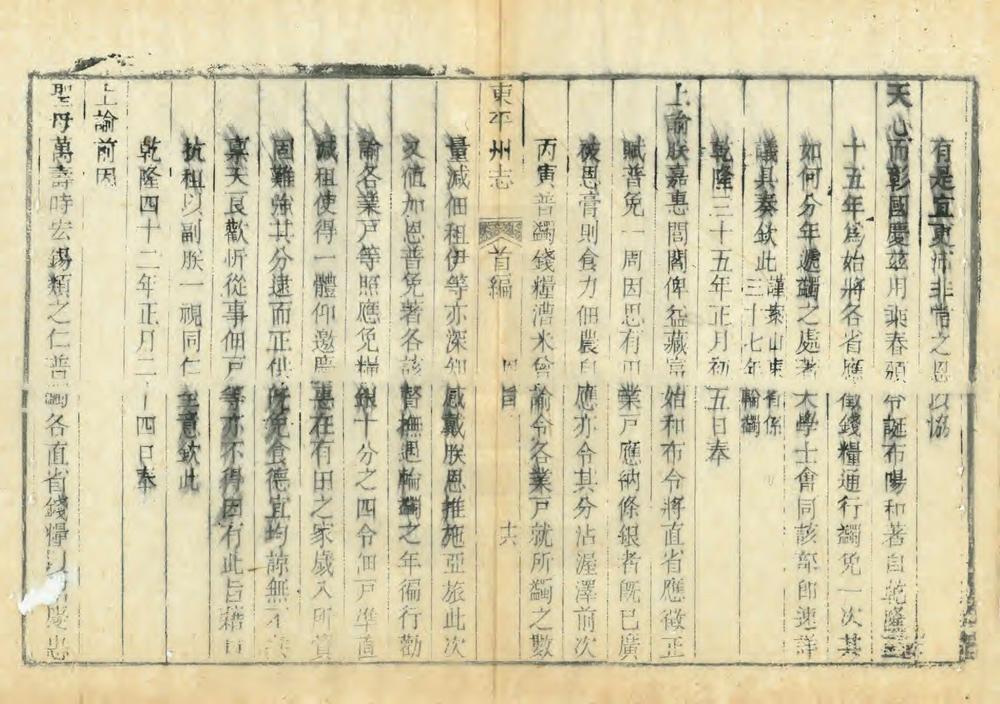 有是宜更沛非常之恩以協
天心而彰國慶茲用乘春頒令誕布陽和著自乾隆三
十五年爲始將各省應徵錢糧通行蠲免一次其
如何分年遞蠲之處著大學士會同該部卽速詳
議具奏欽此
謹案山東省係
三十七年輪蠲
乾隆三十五年正月初五日奉
上諭朕嘉惠閭閻俾益藏富始和布令將直省應徵正
賦普免一周因思有田業戶應納條銀者旣已廣
被恩膏則食力佃農自應亦令其分沾渥澤前次
丙寅普蠲錢糧漕米曾諭令各業戶就所蠲之數
東平州志 首編 四 旨 十六
量減佃租伊等亦深知感戴朕恩推施亞旅此次
又值加恩普免著各該督撫遇輪蠲之年徧行勸
諭各業戶等照應免糧銀十分之四令佃戶準值
減租使得一體仰邀慶惠在有田之家歲入所資
固難強其分逮而正供旣免食德宜均諒無不共
稟天良歡忻從事佃戶等亦不得因有此旨藉口
抗租以副朕一視同仁至意欽此
乾隆四十二年正月二十四日奉
上諭前因
聖母萬壽時宏錫類之仁普蠲各直省錢糧以昭慶惠